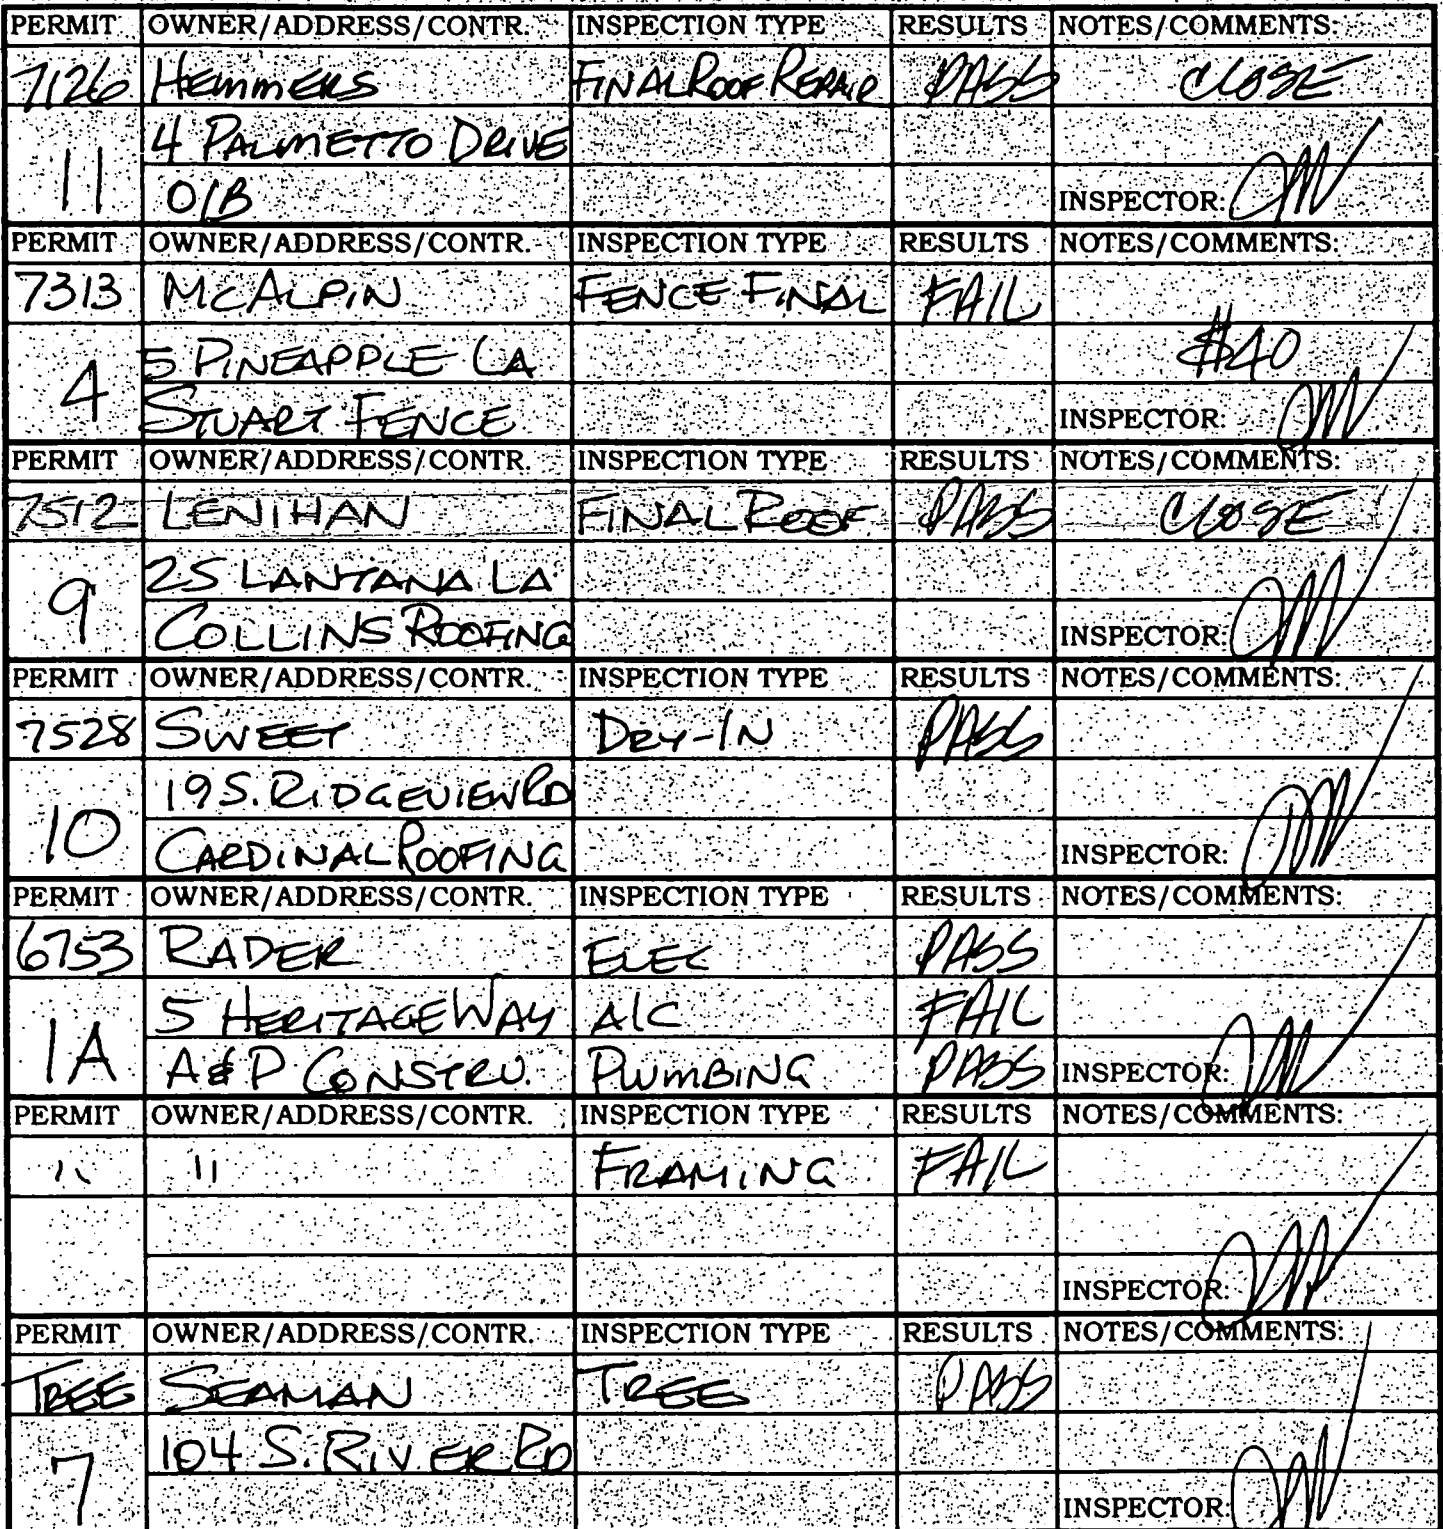 PERMIT OWNER/ADDRESS/CONTR. INSPECTION TYPE RESULTS NOTES/COMMENTS:
7126 HEMMERS FINAL ROOF REPAIR PASS CLOSE
4 PALMETTO DRIVE
11 O/B INSPECTOR:
PERMIT OWNER/ADDRESS/CONTR. INSPECTION TYPE RESULTS NOTES/COMMENTS:
7313 MCALPIN FENCE FINAL FAIL
5 PINEAPPLE LA $40
4 STUART FENCE INSPECTOR:
PERMIT OWNER/ADDRESS/CONTR. INSPECTION TYPE RESULTS NOTES/COMMENTS:
7512 LENIHAN FINAL ROOF PASS CLOSE
25 LANTANA LA
9 COLLINS ROOFING INSPECTOR:
PERMIT OWNER/ADDRESS/CONTR. INSPECTION TYPE RESULTS NOTES/COMMENTS:
7528 SWEET DRY-IN PASS
19 S. RIDGEVIEW RD
10 CARDINAL ROOFING INSPECTOR:
PERMIT OWNER/ADDRESS/CONTR. INSPECTION TYPE RESULTS NOTES/COMMENTS:
6753 RADER ELEC PASS
5 HERITAGE WAY A/C FAIL
1A A&P CONSTRU. PLUMBING PASS INSPECTOR:
PERMIT OWNER/ADDRESS/CONTR. INSPECTION TYPE RESULTS NOTES/COMMENTS:
" " FRAMING FAIL
INSPECTOR:
PERMIT OWNER/ADDRESS/CONTR. INSPECTION TYPE RESULTS NOTES/COMMENTS:
TREE SEAMAN TREE PASS
104 S. RIVER RD
7 INSPECTOR: